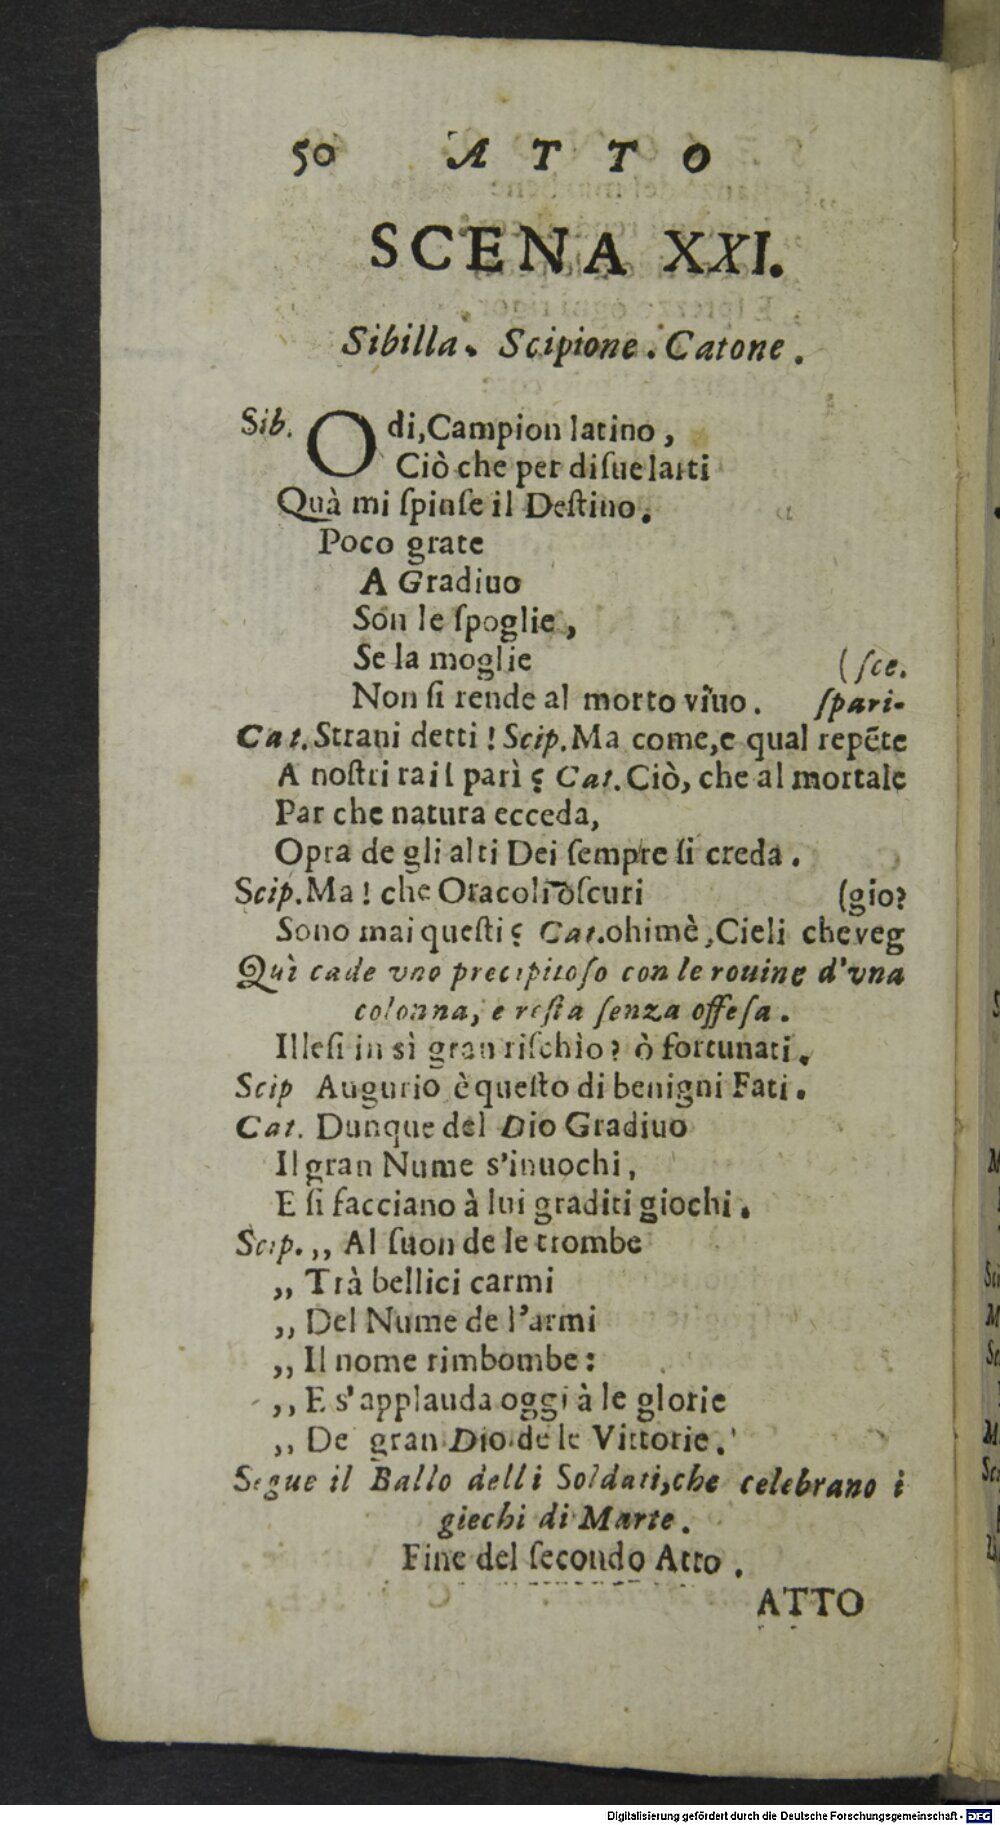 50 ATTO
SCENA XXI.
Sibilla. Scipione. Catone.
Sib. Odi, Campion latino,
Ciò che per disuelarti
Quà mi ſpinſe il Deſtino.
Poco grate
A Gradiuo
Son le ſpoglie,
Se la moglie (ſce.
Non ſi rende al morto viuo. ſpari-
Cat. Strani detti! Scip. Ma come, e qual repẽte
A noſtri rai ſparì? Cat. Ciò, che al mortale
Par che natura ecceda,
Opra de gli alti Dei ſempre ſi creda.
Scip. Ma! che Oracoli oſcuri (gio?
Sono mai queſti? Cat. ohimè, Cieli che veg
Quì cade vno precipitoſo con le rouine d'vna
colonna, e reſta ſenza offeſa.
Illeſi in sì gran riſchio? ò fortunati.
Scip Augurio è queſto di benigni Fati.
Cat. Dunque del Dio Gradiuo
Il gran Nume s'inuochi,
E ſi facciano à lui graditi giochi.
Scip. ,, Al ſuon de le trombe
,, Trà bellici carmi
,, Del Nume de l'armi
,, Il nome rimbombe:
,, E s'applauda oggi à le glorie
,, De gran Dio de le Vittorie.
Segue il Ballo delli Soldati, che celebrano i
giechi di Marte.
Fine del ſecondo Atto.
ATTO
Digitalisierung gefördert durch die Deutsche Forschungsgemeinschaft - DFG